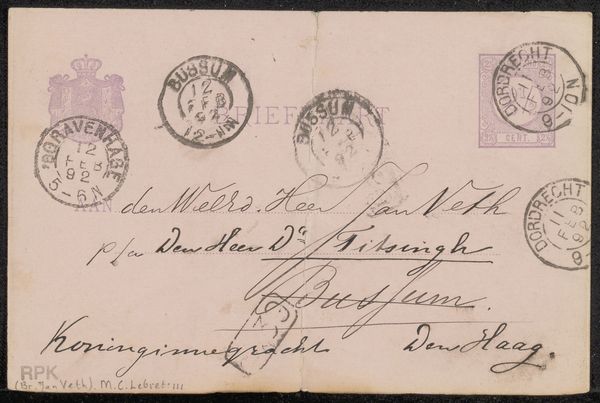 BUSSUM
12
FEB
92
BRIEFKAART
BUSSUM
12
FEB
92
DORDRECHT
11
FEB
92
8-10N
2½ CENT. 2½
'SGRAVENHAGE
12
FEB
92
5-6N
DORDRECHT
11
FEB
92
AAN den Weled. Heer Jan Veth
p/a Den Heer Dr. Titsingh
Bussum.
Koninginnegracht Den Haag.
RPK
(Br. Jan Veth) M.C. Lebret: III